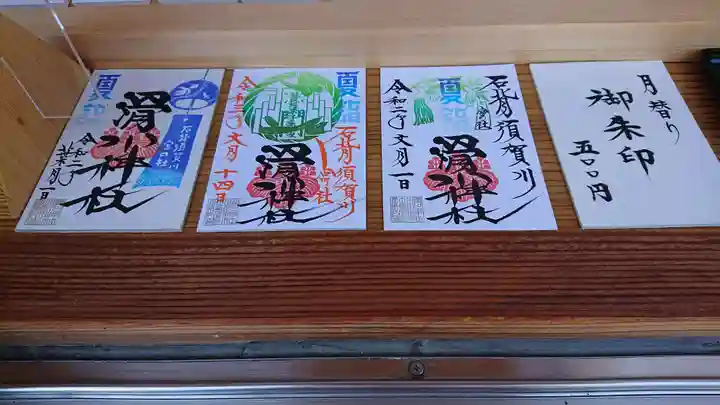 夏詣
滑川神社
石背須賀川
令和二年
葉月一日
夏詣
石背須賀川
滑川神社
令和二年文月十四日
夏詣
石背須賀川
滑川神社
令和二年文月一日
月替り
御朱印
五〇〇円